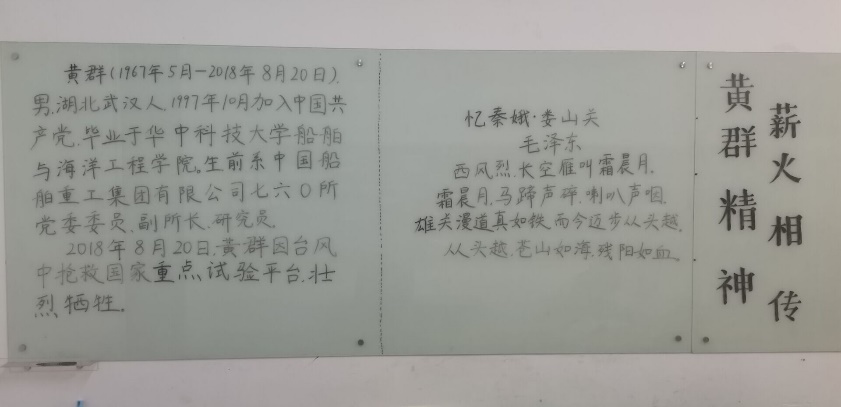 黄群(1967年5月-2018年8月20日),
男,湖北武汉人,1997年10月加入中国共
产党,毕业于华中科技大学船舶
与海洋工程学院。生前系中国船
舶重工集团有限公司七六0所
党委委员、副所长、研究员
2018年8月20日,黄群因台风
中抢救国家重点试验平台,壮
烈牺牲。
忆秦娥·娄山关
毛泽东
西风烈,长空雁叫霜晨月,
霜晨月,马蹄声碎,喇叭声咽。
雄关漫道真如铁,而今迈步从头越,
从头越,苍山如海,残阳如血。
黄群精神
薪火相传